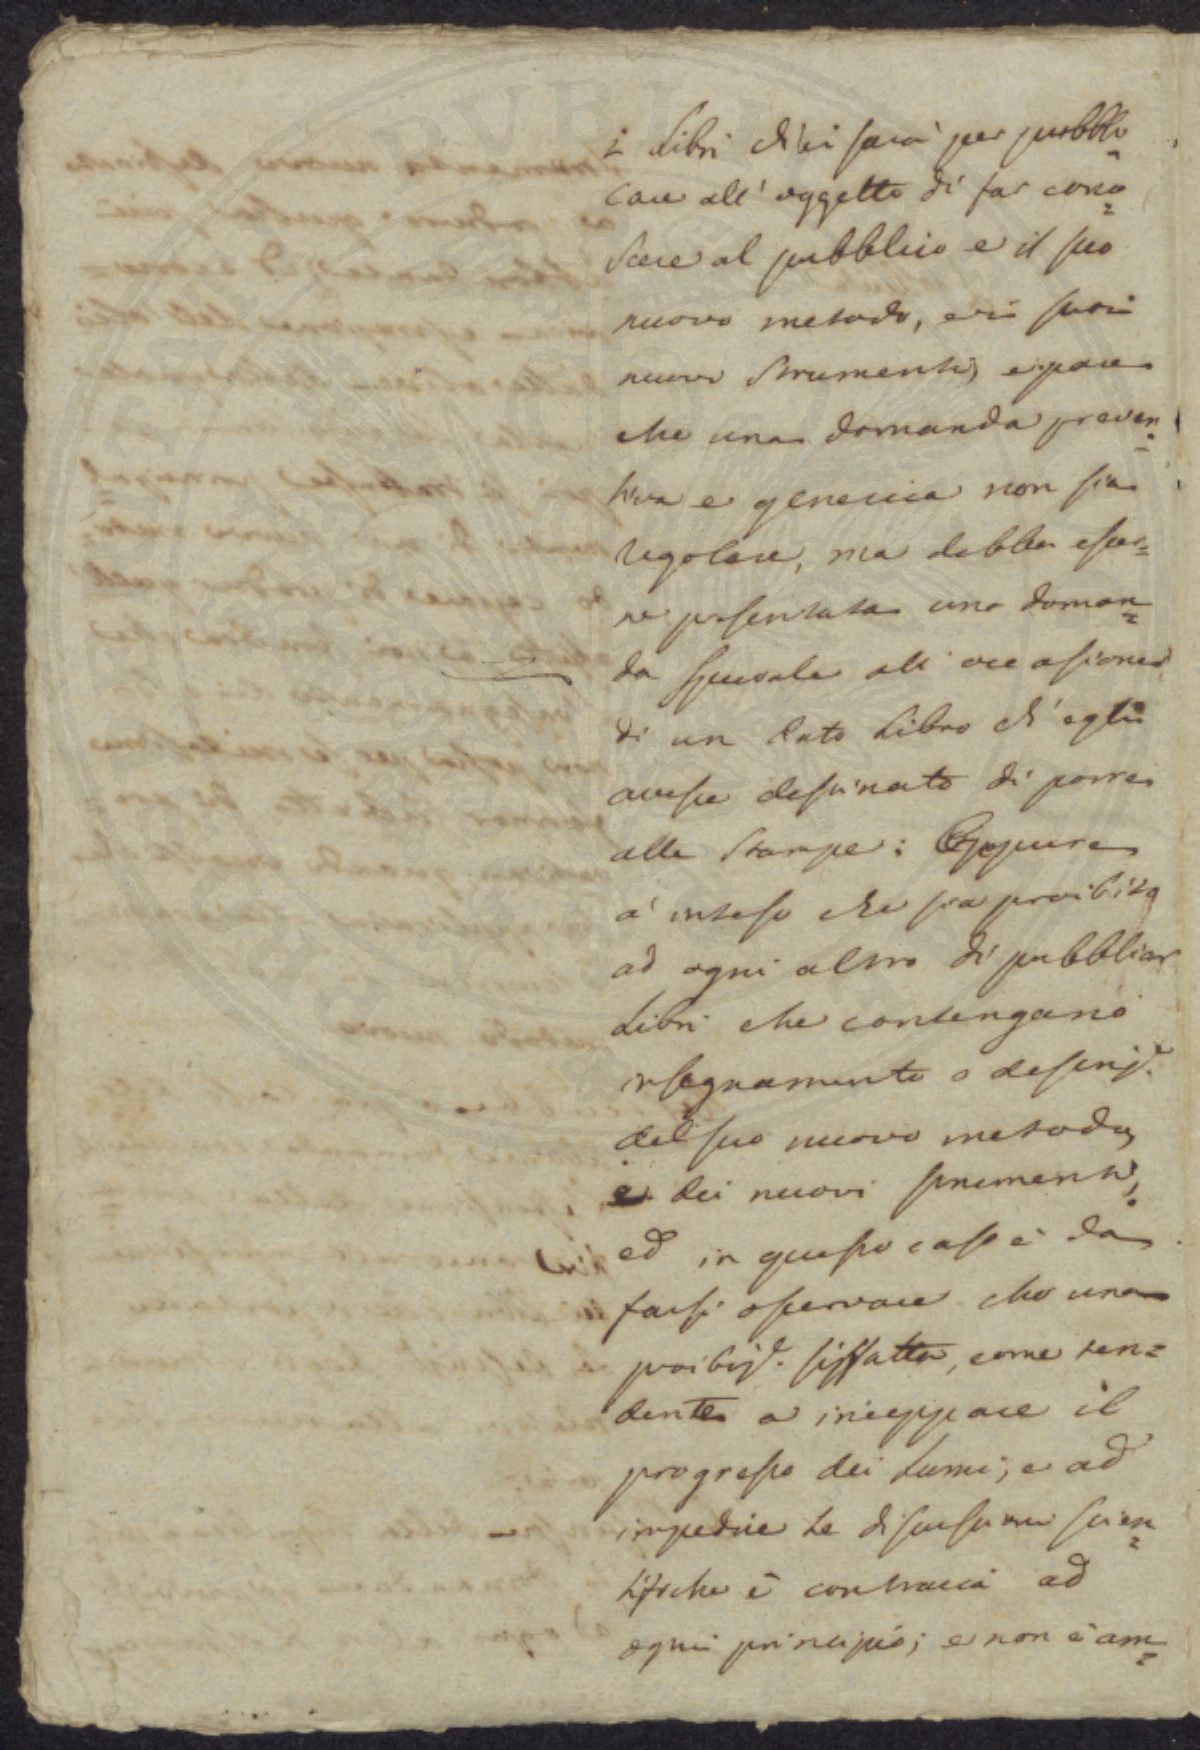 i Libri ch'ei sarà per pubbli=
care all'oggetto di far cono=
scere al pubblico e il suo
nuovo metodo, e i suoi
nuovi Strumenti, e pare
che una domanda preven=
tiva e generica non sia
regolare, ma debba esser=
ne presentata una doman=
da speciale all'occasione
di un dato Libro ch'egli
avesse destinato di porre
alle Stampe: Oppure
à inteso che sia proibito
ad ogni altro di pubblicar
Libri che contengano
insegnamento o descriz.e
del suo nuovo metodo,
e dei nuovi strumenti,
ed in questo caso è da
farsi osservare che una
proibiz.e siffatta, come ten=
dente a inceppare il
progresso dei Lumi, e ad
impedire le discussioni scien=
tifiche è contraria ad
ogni principio; e non è am=